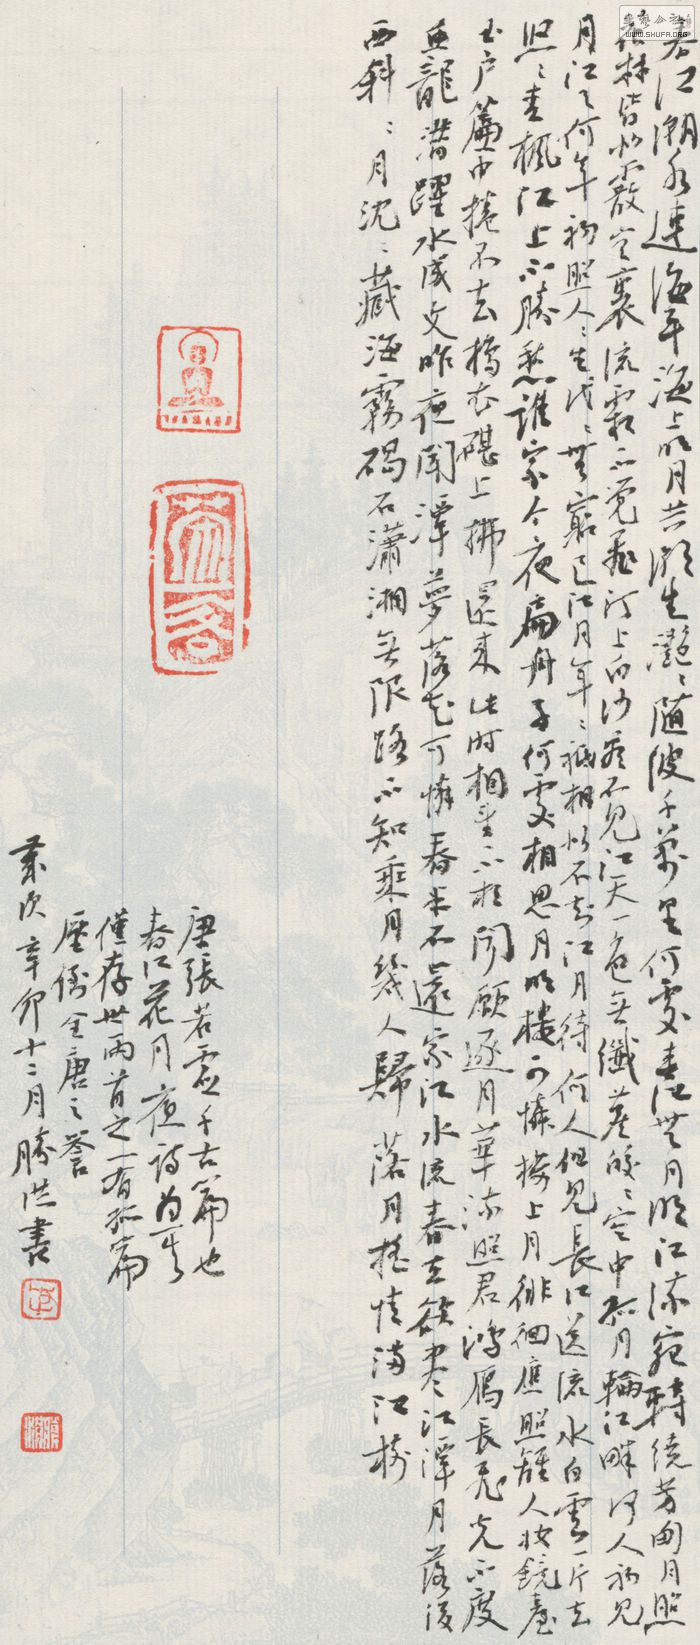 書法公社
WWW.SHUFA.ORG
春江潮水連海平海上明月共潮生灔〻随波千萬里何處春江無月明江流宛轉繞芳甸月照
花林皆似霰空裏流霜不覺飛汀上白沙看不見江天一色無纖塵皎〻空中孤月輪江畔何人初見
月江月何年初照人〻生代〻無窮已江月年〻祇相似不知江月待何人但見長江送流水白雲一片去
悠〻青楓江上不勝愁誰家今夜扁舟子何處相思月明樓可憐樓上月徘徊應照離人妝鏡臺
玉户簾中捲不去擣衣碪上拂還来此時相望不相聞願逐月華流照君鴻雁長飛光不度
魚龍潛躍水成文昨夜閒潭夢落花可憐春半不還家江水流春去欲盡江潭月落復
西斜〻月沈〻藏海霧碣石瀟湘無限路不知乘月幾人歸落月摇情滿江樹
唐張若虛千古篇也
春江花月夜詩為其
僅存世兩首之一有孤篇
壓倒全唐之譽
歲次辛卯十二月勝洪書